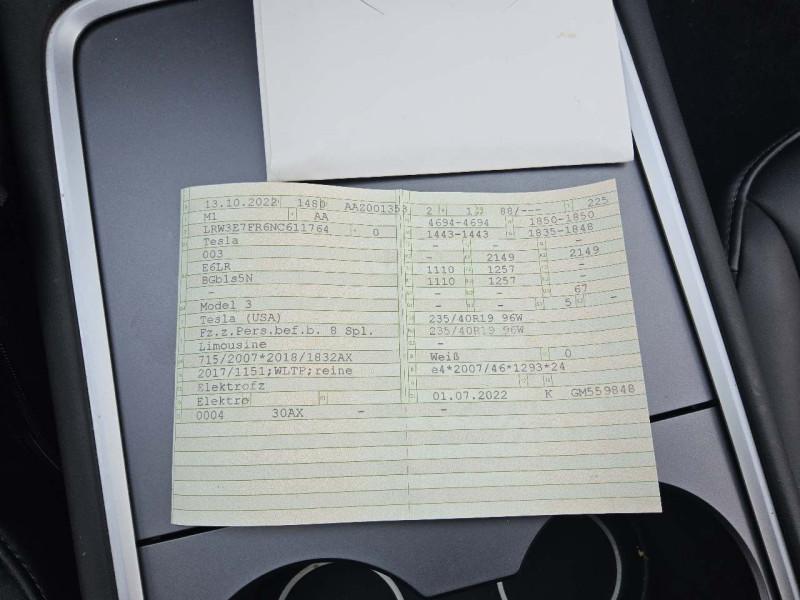 13.10.2022 1480 AA2001358
M1 AA
LRW3E7FR6NC611764 0
Tesla
003
E6LR
BGb1s5N
-
Model 3
Tesla (USA)
Fz.z.Pers.bef.b. 8 Spl.
Limousine
715/2007*2018/1832AX
2017/1151;WLTP;reine
Elektrofz
Elektro
0004 30AX - -
2 1 88/--- 225
4694-4694 1850-1850
1443-1443 1835-1848
- - -
- 2149 2149
1110 1257 -
1110 1257 -
- - 67
- - 5 -
235/40R19 96W
235/40R19 96W
-
Weiß 0
e4*2007/46*1293*24
01.07.2022 K GM559848